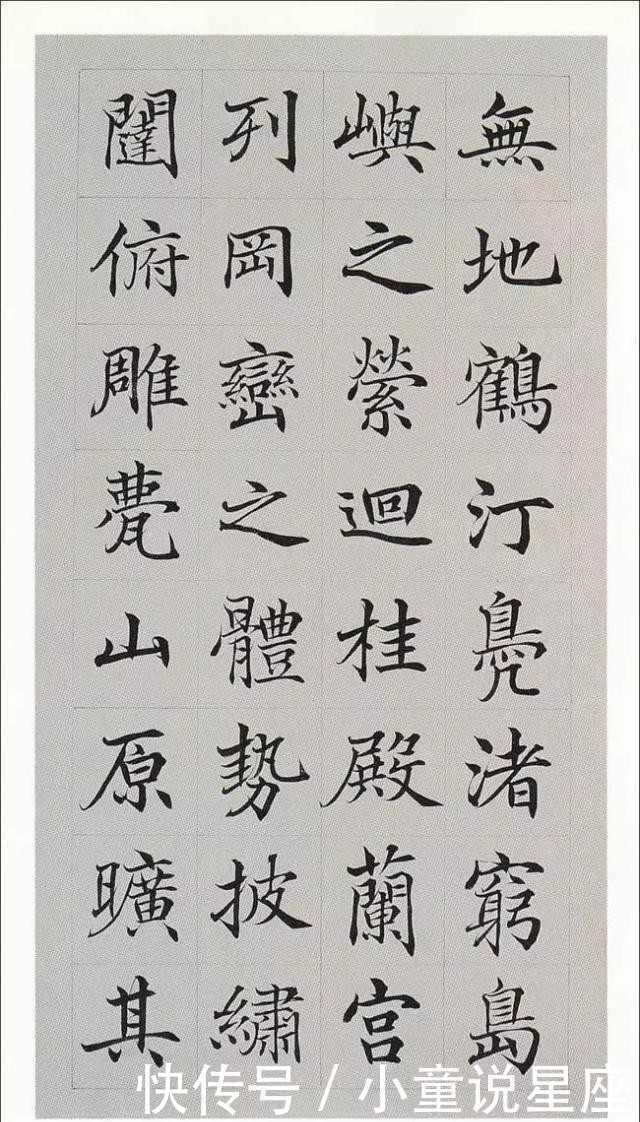 無地鶴汀鳧渚窮島
嶼之縈迴桂殿蘭宮
列岡巒之體勢披繡
闥俯雕甍山原曠其
快传号 / 小童说星座